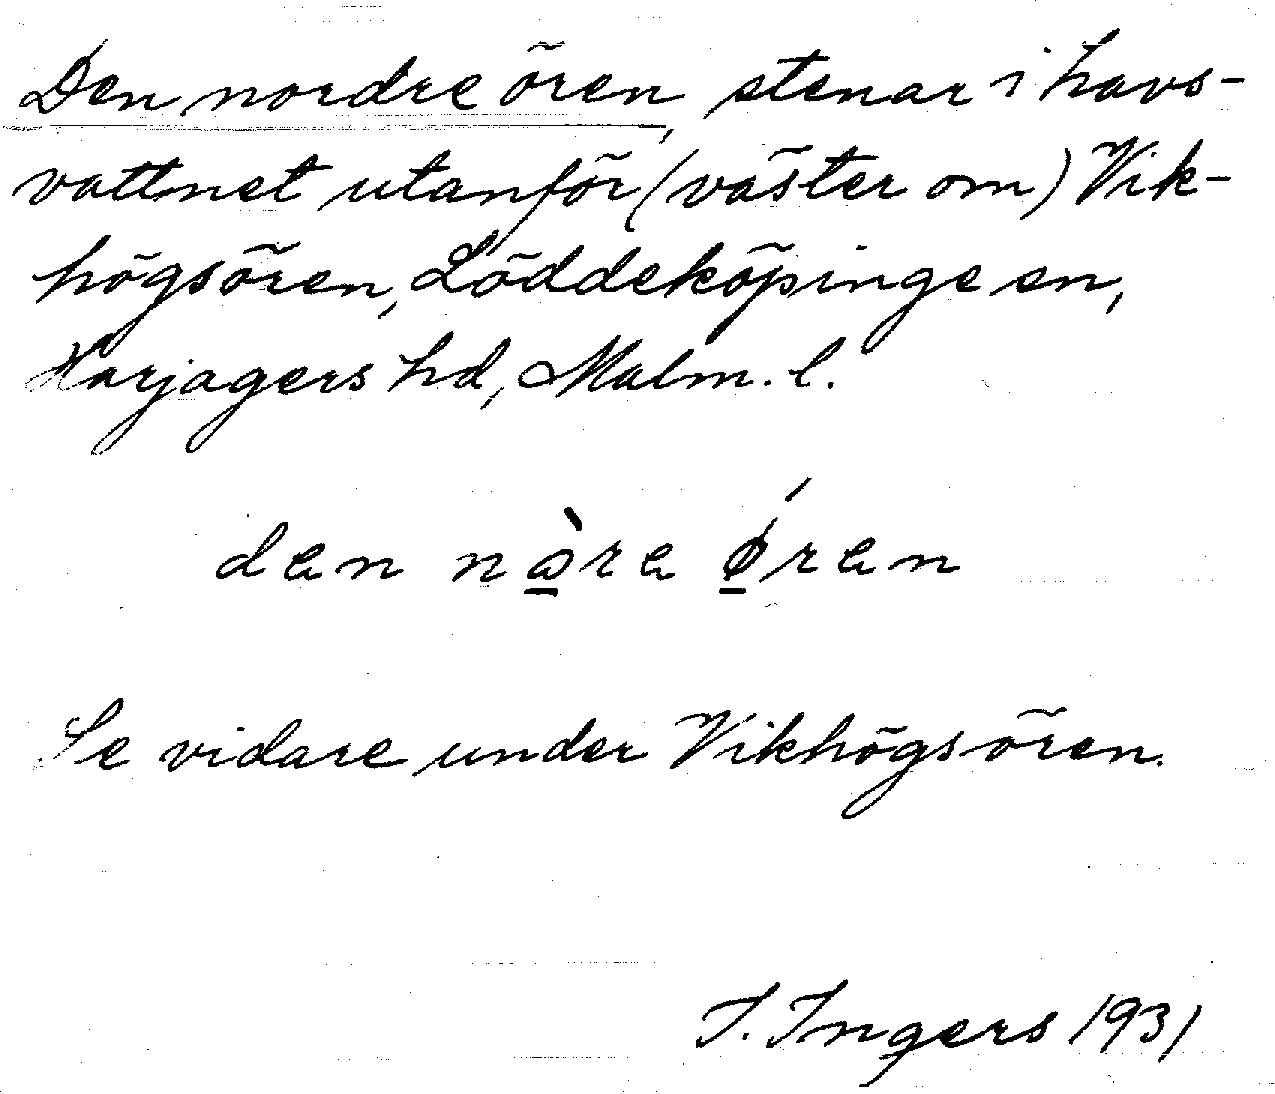 Den nordre ören, stenar i havs-
vattnet utanför (väster om) Vik-
högsören, Löddeköpinge sn,
Harjagers hd, Malm. l.
den nòre ǿren
Se vidare under Vikhögsören.
I. Ingers 1931